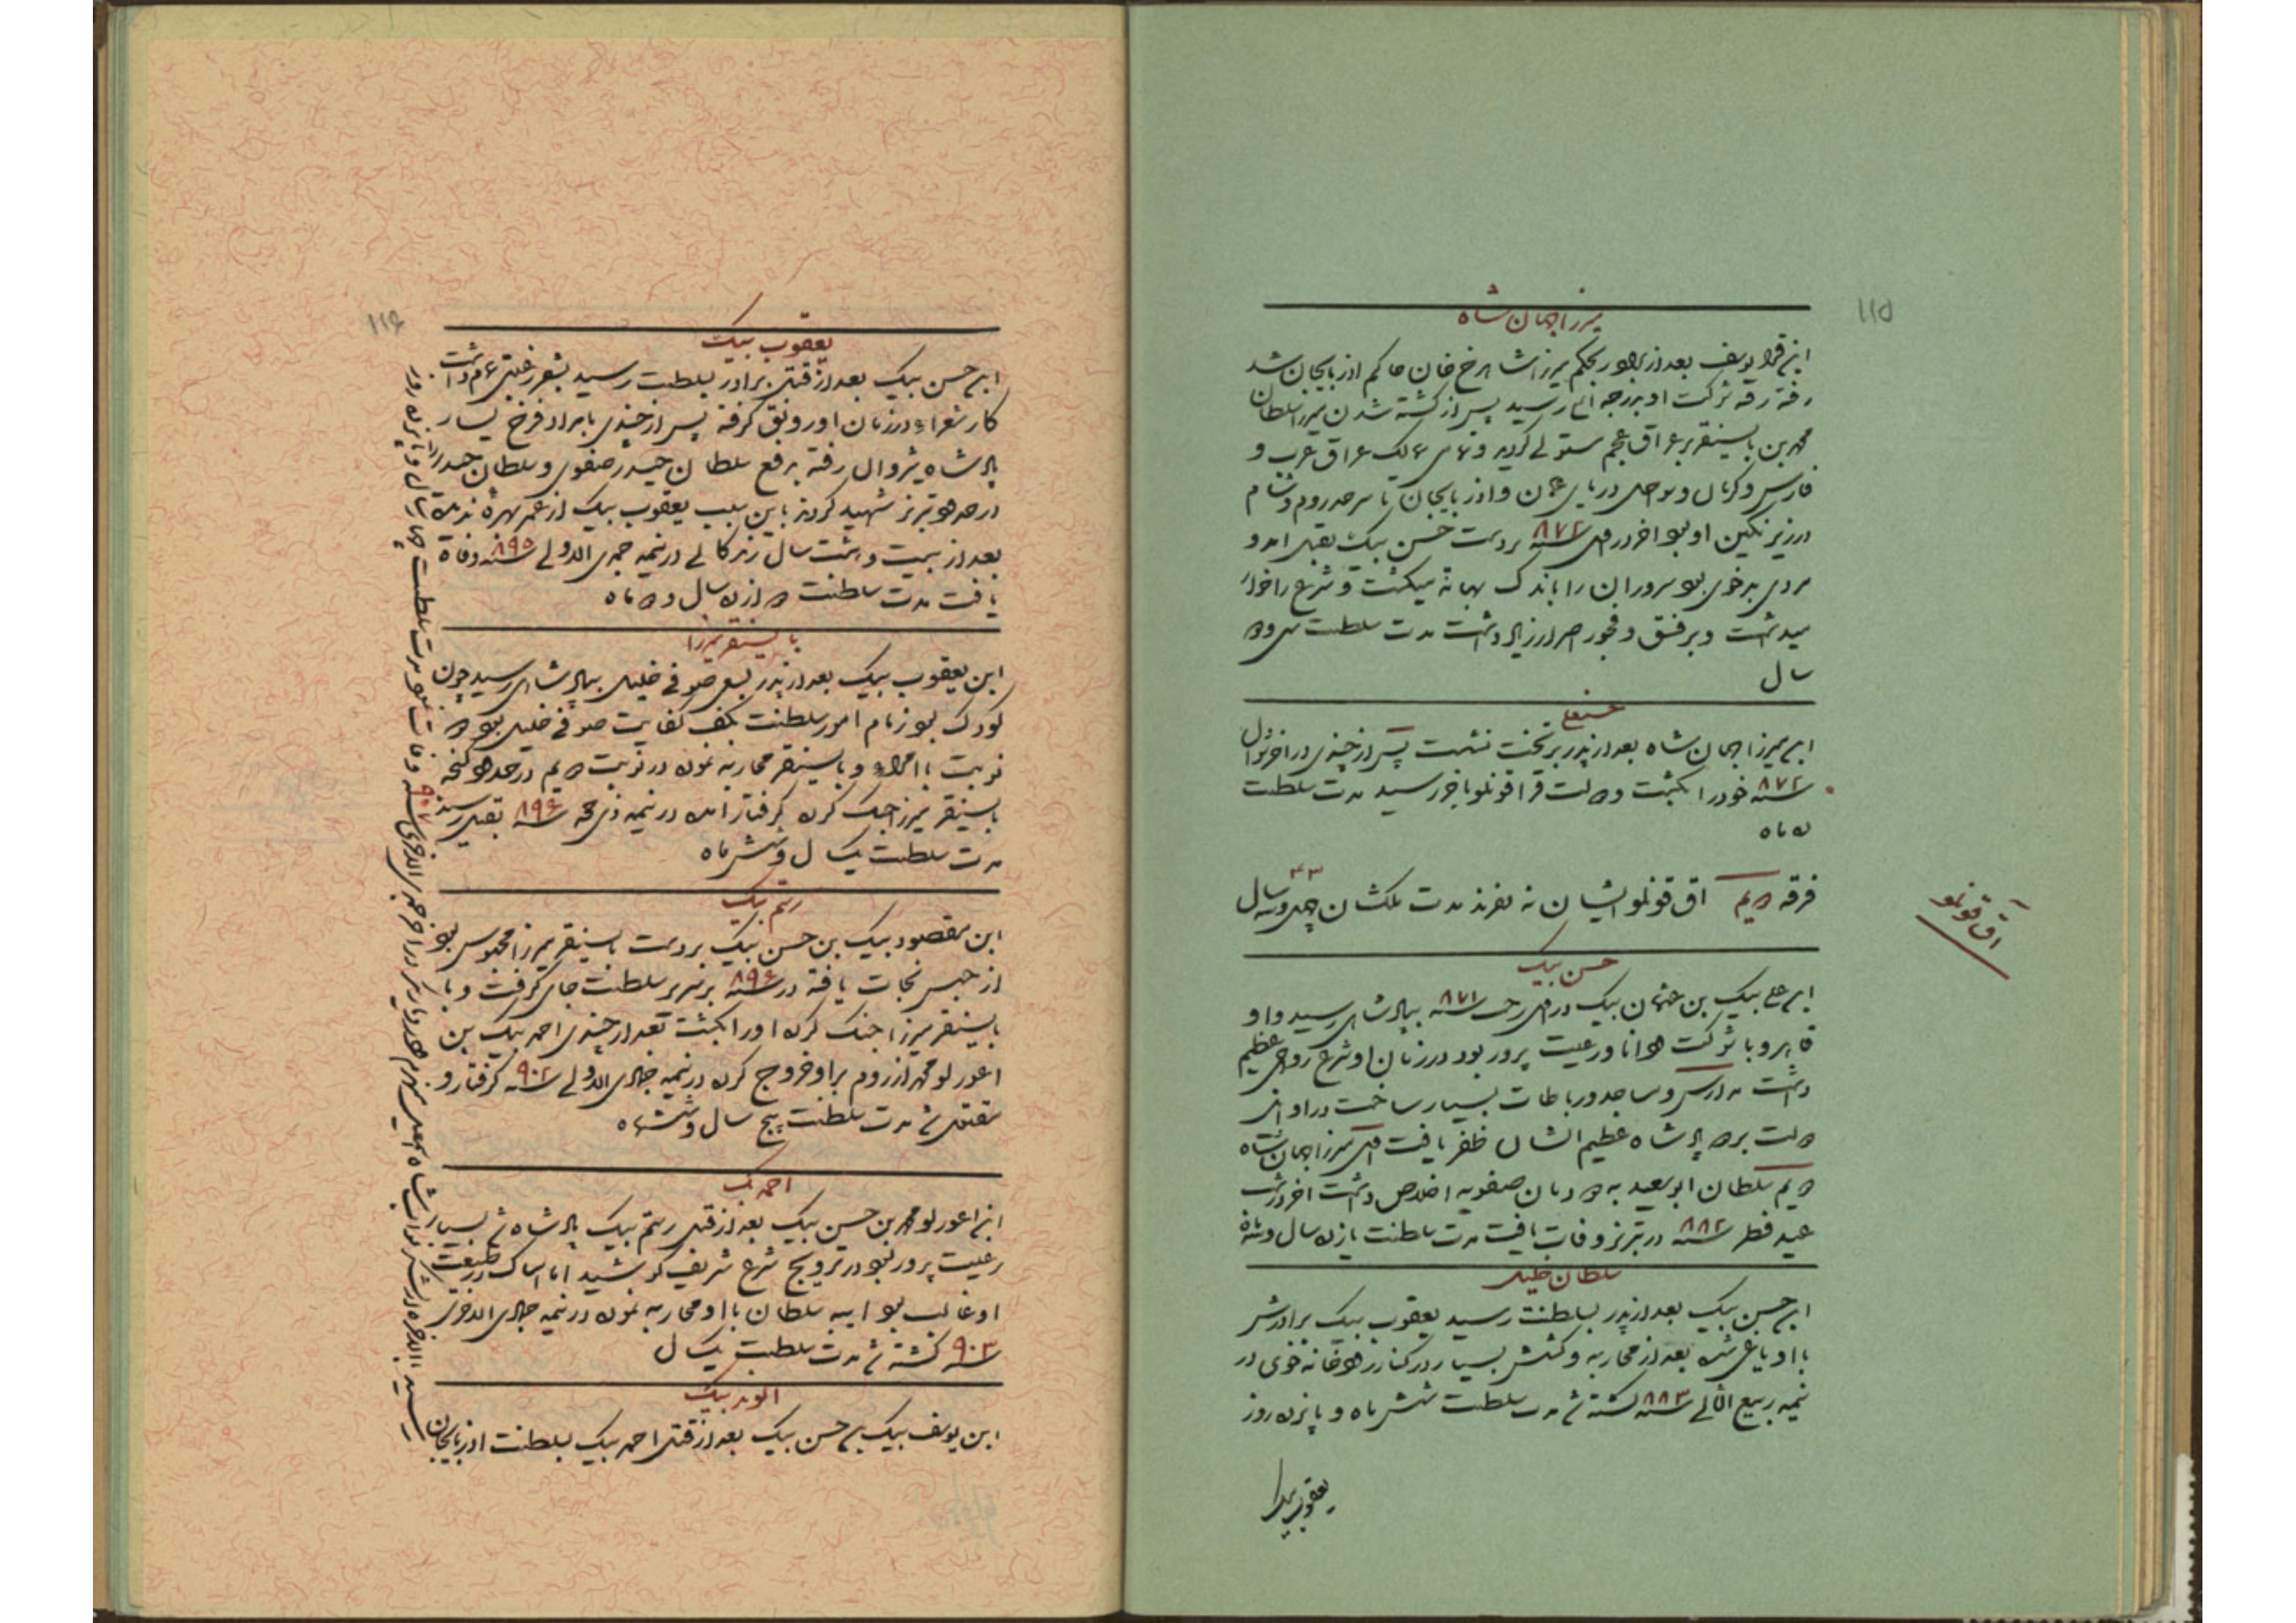 ۱۱۵
میرزا جهان شاه
ابن قرا یوسف بعد از برادر بحکم میرزا شاهرخ خان حاکم اذربایجان شد
رفته رفته شوکت او بدرجه اعلی رسید پس از کشته شدن میرزا سلطان
محمد بن بایسنقر بر عراق عجم مستولی گردید و تمامی ممالک عراق عرب و
فارس و کرمان و سواحل دریای عمان و اذربایجان تا سرحد روم و شام
در زیر نگین او بود اخر در سنه ۸۷۲ بر دست حسن بیک بقتل امد و
مردی بدخوی بود سروران را باندک بهانه میکشت و شرع را خوار
میداشت و بر فسق و فجور اصرار زیاد داشت مدت سلطنت سی و دو
سال
حسنعلی
ابن میرزا جهان شاه بعد از پدر بر تخت نشست پس از چندی در اخر شوال
سنه ۸۷۲ خود را بکشت و دولت قراقونلو باخر رسید مدت سلطنت
ده ماه
فرقه دویم اق قونلو ایشان نه نفرند مدت ملکشان چهل و سه سال
۴۳
آق قونلو
حسن بیک
ابن علی بیک بن عثمان بیک در سنه ۸۷۱ بپادشاهی رسید و او
قاهر و با شوکت دانا و رعیت پرور بود در زمان او شرع رواجی عظیم
داشت مدارس و مساجد و رباطات بسیار ساخت در اوان
دولت بر دو پادشاه عظیم الشان ظفر یافت اول میرزا جهان شاه
دویم سلطان ابوسعید به دودمان صفویه اخلاص داشت اخر در شب
عید فطر سنه ۸۸۲ در تبریز وفات یافت مدت سلطنت یازده سال و سه ماه
سلطان خلیل
ابن حسن بیک بعد از پدر بسلطنت رسید یعقوب بیک برادرش
با او یاغی شده بعد از محاربه و کشش بسیار در کنار رودخانه خوی در
نیمه ربیع الثانی سنه ۸۸۳ کشته شد مدت سلطنت شش ماه و پانزده روز
یعقوب بیک
۱۱۶
یعقوب بیک
ابن حسن بیک بعد از قتل برادر بسلطنت رسید بشعر رغبتی تمام داشت
کار شعراء در زمان او رونق گرفته پس از چندی با برادر فرخ یسار
پادشاه شروان رفته برفع سلطان حیدر صفوی و سلطان حیدر را
در حدود تبریز شهید کردند باین سبب یعقوب بیک از عمر بهره ندیده
بعد از بیست و هشت سال زندگانی در نیمه جمادی الاولی سنه ۸۹۵ وفات
یافت مدت سلطنت دوازده سال و دو ماه
بایسنقر میرزا
ابن یعقوب بیک بعد از پدر بسعی صوفی خلیل بپادشاهی رسید چون
کودک بود زمام امور سلطنت بکف کفایت صوفی خلیل بود دو
نوبت با امراء و بایسنقر محاربه نموده در نوبت دویم در حدود گنجه
بایسنقر میرزا جنگ کرده گرفتار امده در نیمه ذی حجه سنه ۸۹۶ بقتل رسید
مدت سلطنت یک سال و شش ماه
رستم بیک
ابن مقصود بیک بن حسن بیک بر دست بایسنقر میرزا محبوس بود
از حبس نجات یافته در سنه ۸۹۶ بر سریر سلطنت جای گرفت و با
بایسنقر میرزا جنگ کرده او را بکشت بعد از چندی احمد بیک بن
اغورلو محمد از روم بر او خروج کرده در نیمه جمادی الاولی سنه ۹۰۲ گرفتار و
مقتول شد مدت سلطنت پنج سال و شش ماه
احمد بیک
ابن اغورلو محمد بن حسن بیک بعد از قتل رستم بیک پادشاه شد بسیار
رعیت پرور بود در ترویج شرع شریف کوشید اما امساک در طبیعت
او غالب بود ایبه سلطان با او محاربه نموده در نیمه جمادی الاخری
سنه ۹۰۳ کشته شد مدت سلطنت یک سال
الوند بیک
ابن یوسف بیک بن حسن بیک بعد از قتل احمد بیک بسلطنت اذربایجان
رسید بالاخره از لشکر نواب شاه اسمعیل منهزم در دیاربکر در اخر جمادی الاخری سنه ۹۰۷ وفات نمود مدت سلطنت چهار سال و پانزده روز